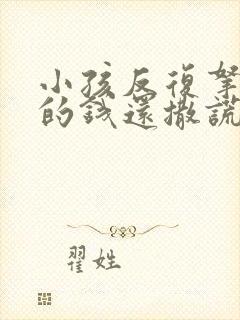 小孩反復拿
的錢還撒謊
翟姓